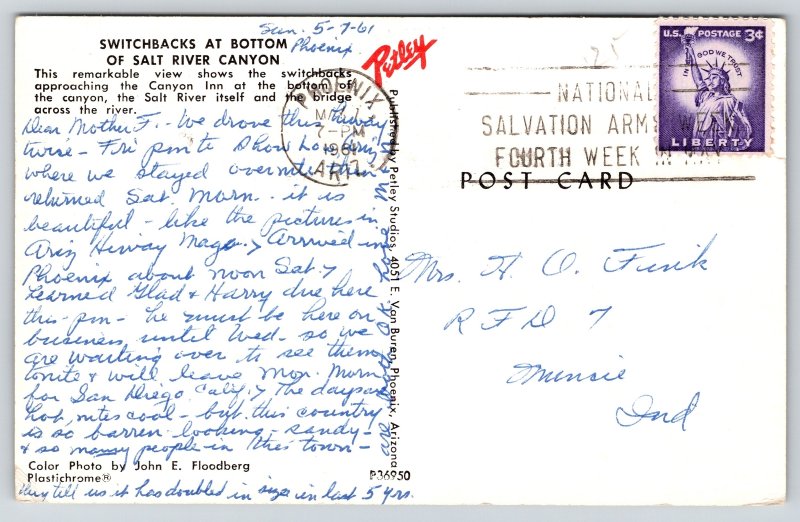 Sun. 5-7-61
Phoenix
SWITCHBACKS AT BOTTOM
OF SALT RIVER CANYON
This remarkable view shows the switchbacks
approaching the Canyon Inn at the bottom of
the canyon, the Salt River itself and the bridge
across the river.
Dear Mother F. - We drove this hiway
twice - Fri pm to Show Low, Ariz,
where we stayed overnite, then
returned Sat. Morn. - it is
beautiful - like the pictures in
Ariz Hiway Mags. > Arrived in
Phoenix about noon Sat. >
Learned Glad & Harry due here
this - pm - he must be here on
business, until Wed - so we
are waiting over to see them
tonite & will leave Mon. Morn
for San Diego, Calif. > The days are
hot, nites cool - but this country
is so barren looking - sandy -
& so many people in this town -
they tell us it has doubled in size in last 5 yrs.
are both OK home
Color Photo by John E. Floodberg
Plastichrome®
Petley
Published by Petley Studios, 4051 E. Van Buren, Phoenix, Arizona
P36950
PHOENIX
MAY
7-PM
1961
ARIZ.
NATIONAL
SALVATION ARMY
FOURTH WEEK IN MAY
U.S. POSTAGE 3¢
IN GOD WE TRUST
LIBERTY
25
POST CARD
Mrs. H. O. Funk
R F D 7
Muncie
Ind